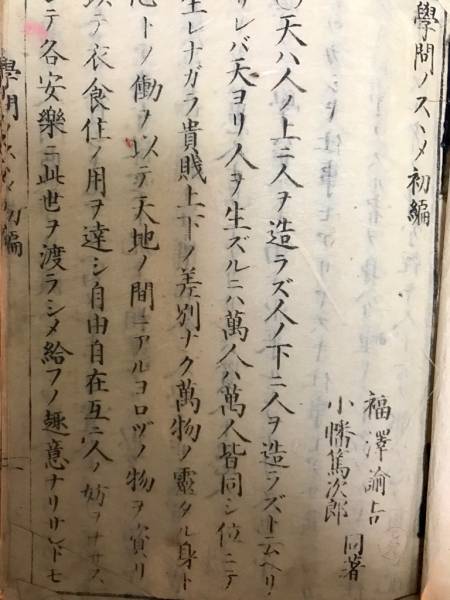 學問ノスヽメ 初編
福澤諭吉
小幡篤次郎 同著
〇天ハ人ノ上ニ人ヲ造ラズ人ノ下ニ人ヲ造ラズト云ヘリ
サレバ天ヨリ人ヲ生ズルニハ萬人ハ萬人皆同シ位ニテ
生レナガラ貴賤上下ノ差別ナク萬物ノ靈タル身ト
心トノ働ヲ以テ天地ノ間ニアルヨロヅノ物ヲ資リ
以テ衣食住ノ用ヲ達シ自由自在互ニ人ノ妨ヲナサズ
シテ各安樂ニ此世ヲ渡ラシメ給フノ趣意ナリサレドモ
學問ノスヽメ 初編 一